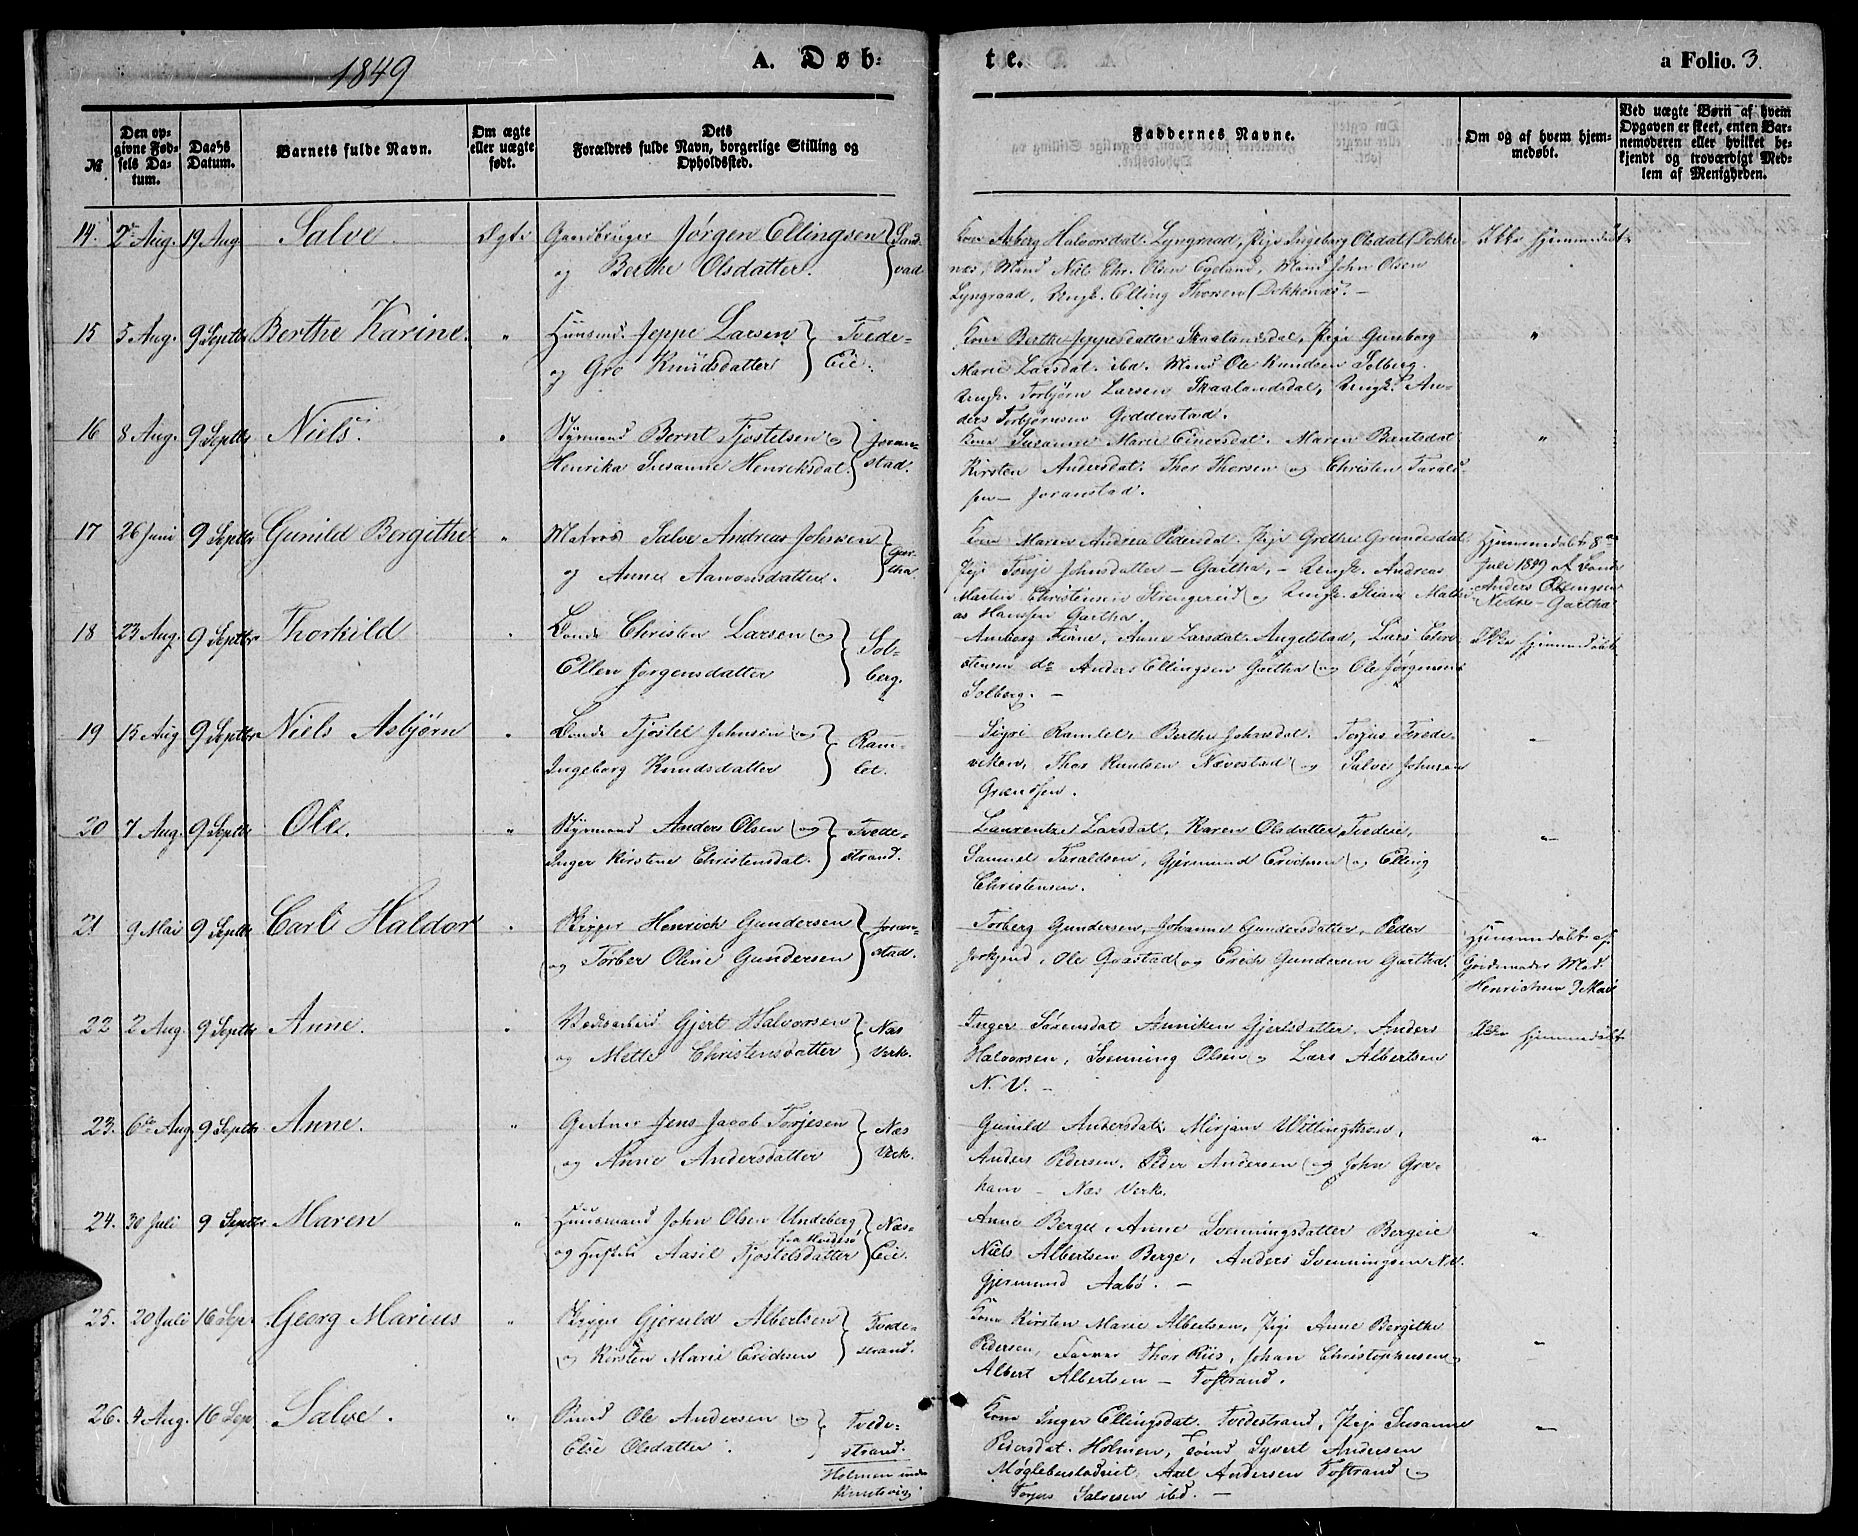 1849
A. Døb-
te.
a Folio. 3.
№
Den opgivne Fødsels Datum.
Daabs Datum.
Barnets fulde Navn.
Om ægte eller uægte født.
Dets Forældres fulde Navn, borgerlige Stilling og Opholdssted.
Faddernes Navne.
Om og af hvem hjemmedøbt.
Ved uægte Børn af hvem Opgaven er skeet, enten Barnemoderen eller hvilket bekjendt og troværdigt Medlem af Menigheden.
14. 2 Aug. 19 Aug Salve. Ægte Gaardbruger Jørgen Ellingsen
og Berthe Olsdatter. Sandvad
Kone Asberg Halvorsdat. Lyngraad, Pige Ingeborg Olsdat. Dokkenæs, Mand Niels Chr. Olsen Egeland, Mand John Olsen
Lyngraad, Ungk. Elling Thorsen Dokkenæs. —
Ikke hjemmedøbt
15 5 Aug. 9 Septbr Berthe Karine. " Huusmd. Jeppe Larsen
og Gro Knudsdatter Tvede-Eie.
Kone Berthe Jeppesdatter Skaalandsdal, Pige Gunborg
Marie Larsdat. ibd. Mand Ole Knudsen Solberg.
Ungk. Torbjørn Larsen Skaalandsdal, Ungk. Anders Torbjørnsen Godderstad.
"
16 8 Aug. 9 Septbr Niels. " Styrmand Bernt Tjostelsen og
Henrika Susanne Henriksdat. Joranstad.
Kone Susanne Marie Einersdat. Maren Berntsdat
Kirsten Andersdat. Thor Thorsen og Christen Taraldsen — Joranstad.
"
17 26 Juni 9 Septbr Gunild Bergithe " Matros Salve Andreas Johnsen
og Anne Aanonsdatter. Gartha
Kone Maren Andrea Pedersdat. Pige Grethe Gundersdat
Pige Tonje Johnsdatter — Gartha, — Ungk. Andreas
Martin Christensen Strengereid og Ungk. Stian Mathias Hansen Gartha.
Hjemmedøbt 8de Juli 1849 af Bonde Anders Ellingsen Nedre-Gartha
18 23 Aug. 9 Septbr Thorkild " Bonde Christen Larsen og
Ellen Jørgensdatter Solberg.
Anborg Fiane, Anne Larsdat. Angelstad, Lars Christensen do Anders Ellingsen Gartha og Ole Jørgensen
Solberg. —
Ikke hjemmedøbt
19 15 Aug 9 Septbr Niels Asbjørn " Bonde Tjostel Johnsen og
Ingeborg Knudsdatter Ramlet.
Sigri Ramlet, Berthe Johnsdat. Torjus Tvedeviken, Thor Knutsen Nævestad og Salve Johnsen
—
20 7 Aug. 9 Septbr Ole. " Styrmand Anders Olsen og
Inger Kirstine Christensdat. Tvedestrand.
Laurentze Larsdat, Karen Olsdatter Tvedeie,
Samuel Taraldsen, Gjermund Erichsen og Elling
Christensen.
—
21 9 Mai 9 Septbr Carl Haldor " Skipper Henrich Gundersen
og Torber Oline Gundersen Joranstad.
Torberg Gundersen, Johanne Gundersdatter, Peder
Ole Goastad og Erich Gundersen Gartha.
Hjemmedøbt af Gjordemoder Mad. Henrichsen 9 Mai
22 2 Aug. 9 Septbr Anne. " Værksarbeid Gjert Halvorsen
og Mette Christensdatter Næs Verk.
Inger Sørensdat Anniken Gjertsdatter, Anders
Halvorsen, Svenning Olsen og Lars Albertsen
N. V. —
Ikke hjemmedøbt
23. 6te Aug. 9 Septbr Anne. " Gartner Jens Jacob Torjesen
og Anne Andersdatter Næs Verk.
Gunild Andersdat. Mirjam Wittingtson,
Anders Pedersen. Peder Andersen og John Graham — Næs Verk.
"
24. 30 Juli 9 Septbr Maren " Huusmand John Olsen Undeberg,
og Hustru Aasil Tjostelsdatter Næs-Eie.
Anne Berge, Anne Svenningsdatter Bergeie
Niels Albertsen Berge, Anders Svenningsen N.V.
Gjermund Aabø. —
"
25. 20 Juli 16 Sep. Georg Marius " Skipper Gjeruld Albertsen
og Kirsten Marie Erichsen Tvedestrand.
Kone Kirsten Marie Albertsen, Pige Anne Bergithe
Pedersen, Farver Thor Riis, Johan Christophersen og
Albert Albertsen — T.strand.
—
26. 4 Aug. 16 Sep Salve. " Ole Andersen og
Else Olsdatter. Tvedestrand.
Holmen
Kone Inger Ellingsdat. Tvedestrand, Pige Susanne
Pedersdat. Holmen, Syvert Andersen
Axel Andersen T.strand og
Torjus Salvesen ibd. —
—